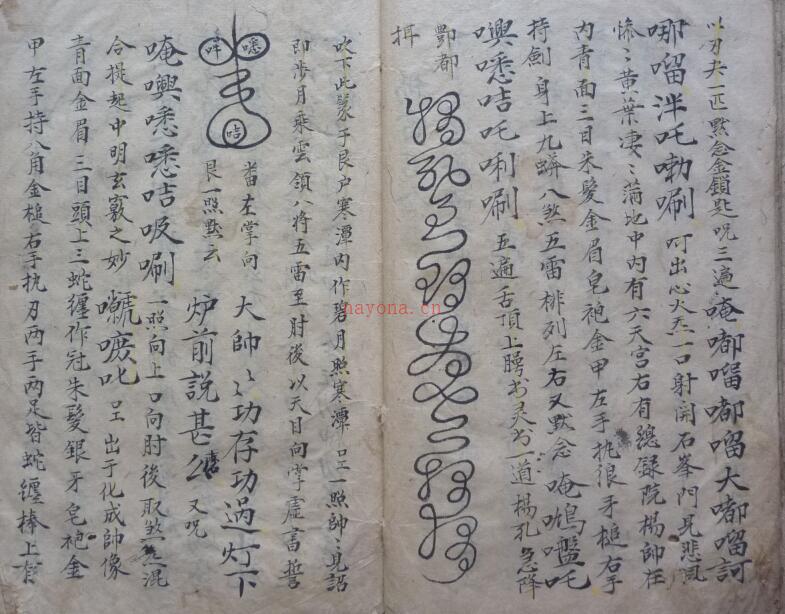 以刃夬一匹默念金鎖匙呪三遍唵嘟㖨嘟㖨大嘟㖨訶
哪㖨泮吒嘞唰 呵出心火炁一口射開石峯門見悲風
慘〻黃葉凄〻滿地中內有六天宮右有總録院楊帥在
內青面三目朱髮金眉皂袍金甲左手执狼牙槌右手
持劍身上九蟒八煞五雷排列左右又默念唵
噢悉咭吒唎唰 五遍舌頂上腭書灵書一道楊孔 急降
酆都
吹下此篆于艮户寒潭內作碧月照寒潭 一照帥〻見詔
即步月乘雲領八將五雷至肘後以天目向掌虛書誓
悉
吽
咭
畨左掌向
艮一照默云
大帥〻功存功過灯下
炉前説甚么 又呪
唵噢悉悉咭吸唰 一照向上口向肘後取煞炁混
合提起中明玄竅之妙 叱 出于化成帥像
青面金眉三目頭上三蛇纏作冠朱髮銀牙皂袍金
甲左手持八角金槌右手执刃两手两足皆蛇纏棒上有
nayona.cn